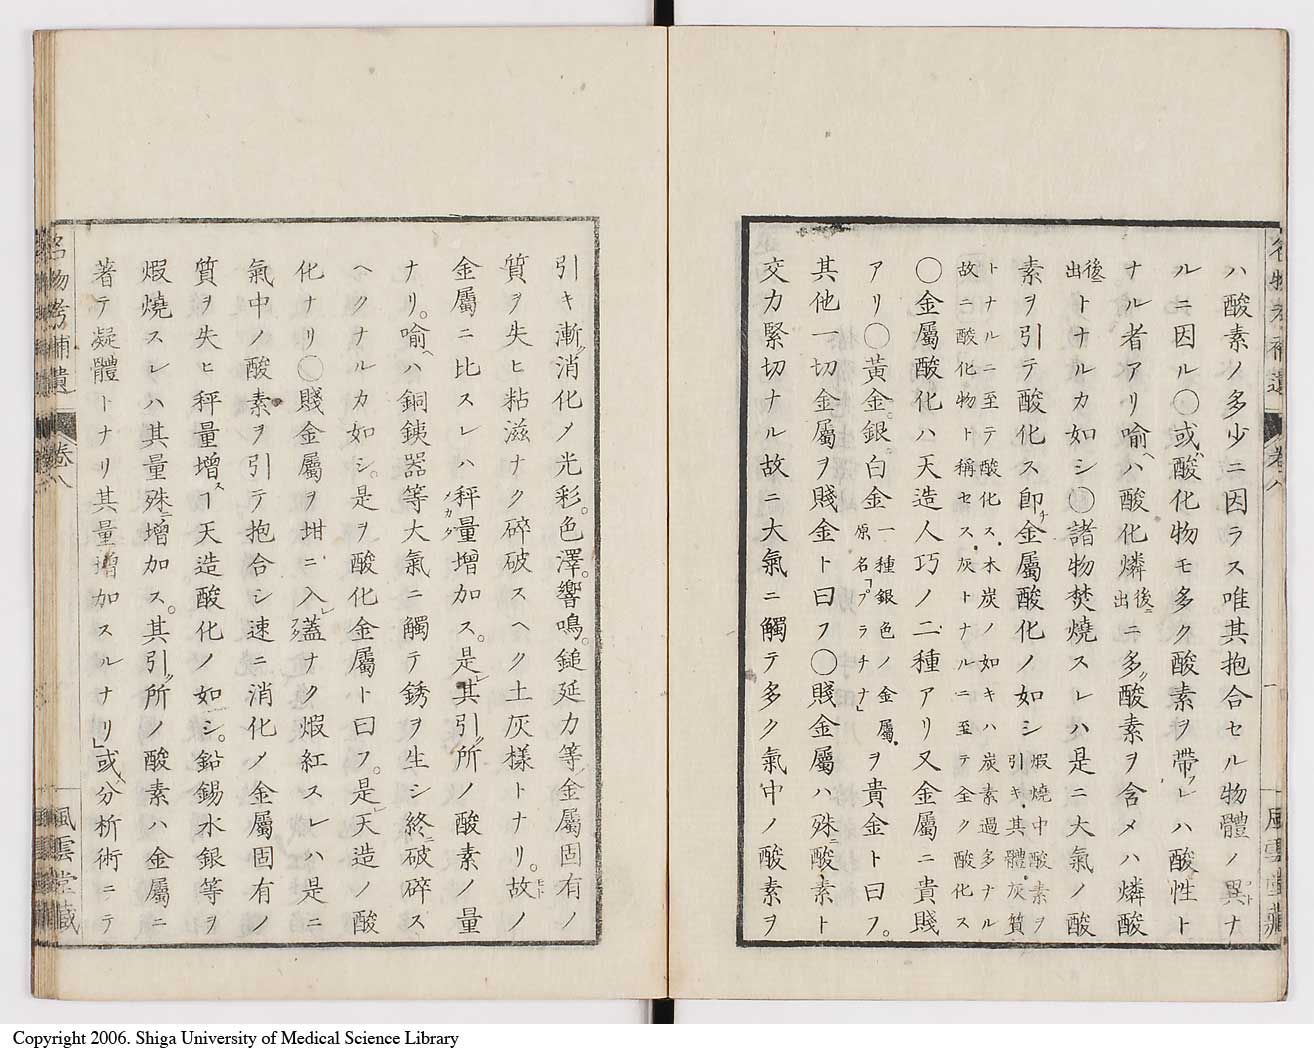 名物考補遺 卷八 一 風雲堂藏
ハ酸素ノ多少ニ因ラス唯其抱合セル物體ノ異ナ
ルニ因ル〇或ハ酸化物モ多ク酸素ヲ帶フレハ酸性ト
ナル者アリ喩ヘハ酸化燐後ニ出ニ多ク酸素ヲ含メハ燐酸
後ニ出トナルカ如シ〇諸物焚燒スレハ是ニ大氣ノ酸
素ヲ引テ酸化ス卽チ金屬酸化ノ如シ煆燒中酸素ヲ引キ其體灰質
トナルニ至テ酸化ス木炭ノ如キハ炭素過多ナル故ニ酸化物ト稱セス灰トナルニ至テ全ク酸化ス
〇金屬酸化ハ天造人巧ノ二種アリ又金屬ニ貴賤
アリ〇黃金。銀。白金一種銀色ノ金屬原名「プラチナ」ヲ貴金ト曰フ。
其他一切金屬ヲ賤金ト曰フ〇賤金屬ハ殊ニ酸素ト
交力緊切ナル故ニ大氣ニ觸テ多ク氣中ノ酸素ヲ
引キ漸ク消化メ光彩。色澤。響鳴。鎚延力等金屬固有ノ
質ヲ失ヒ粘滋ナク碎破スヘク土灰樣トナリ。故ノ
金屬ニ比スレハ秤量增加ス。是其引所ノ酸素ノ量
ナリ。喩ヘハ銅銕器等大氣ニ觸テ銹ヲ生シ終ニ破碎ス
ヘクナルカ如シ。是ヲ酸化金屬ト曰フ。是天造ノ酸
化ナリ〇賤金屬ヲ坩ニ入レ蓋ナク煆紅スレハ是ニ
氣中ノ酸素ヲ引テ抱合シ速ニ消化メ金屬固有ノ
質ヲ失ヒ秤量增ス天造酸化ノ如シ。鉛錫水銀等ヲ
煆燒スレハ其量殊ニ增加ス。其引所ノ酸素ハ金屬ニ
著テ凝體トナリ其量增加スルナリ」或ハ分析術ニテ
名物考補遺 卷八 一 風雲堂藏
Copyright 2006. Shiga University of Medical Science Library